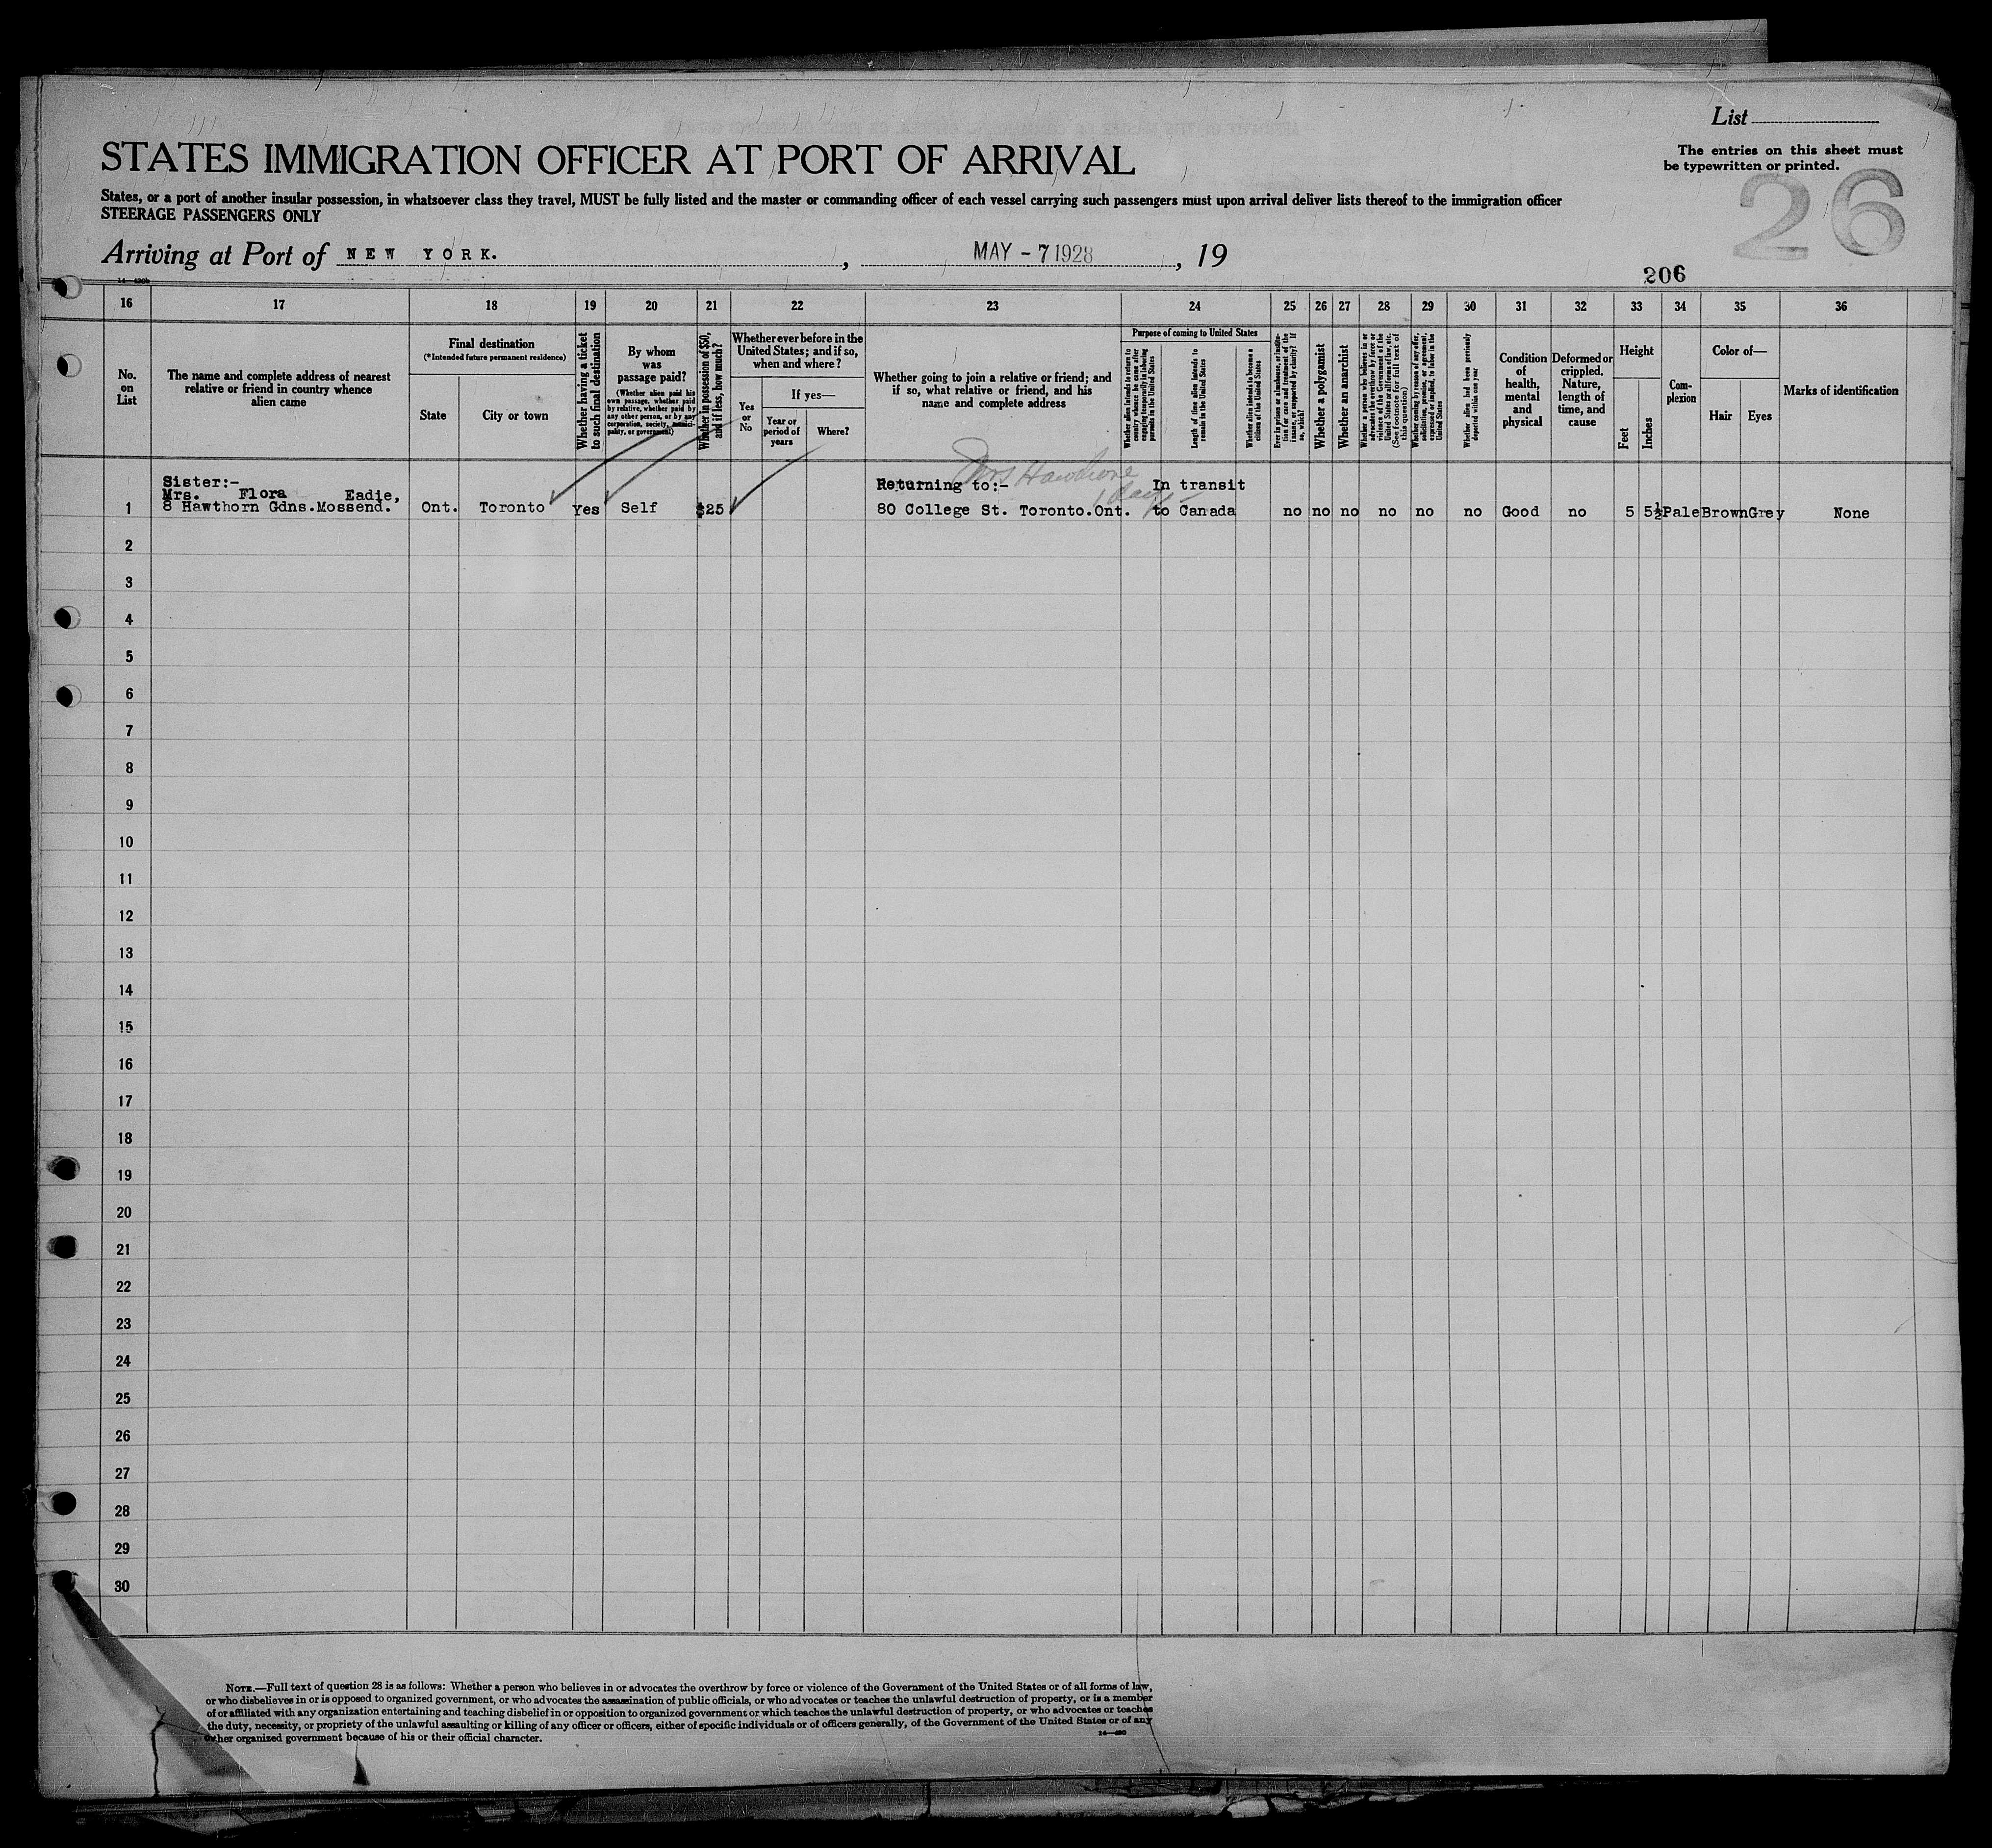 List
STATES IMMIGRATION OFFICER AT PORT OF ARRIVAL
The entries on this sheet must
be typewritten or printed.
States, or a port of another insular possession, in whatsoever class they travel, MUST be fully listed and the master or commanding officer of each vessel carrying such passengers must upon arrival deliver lists thereof to the immigration officer
STEERAGE PASSENGERS ONLY
26
Arriving at Port of NEW YORK. , MAY - 7 1928 , 19
206
16 17 18 19 20 21 22 23 24 25 26 27 28 29 30 31 32 33 34 35 36
No.
on
List
The name and complete address of nearest
relative or friend in country whence
alien came
Final destination
(*Intended future permanent residence)
State
City or town
Whether having a ticket
to such final destination
By whom
was
passage paid?
(Whether alien paid his
own passage, whether paid
by relative, whether paid by
any other person, or by any
corporation, society, munici-
pality, or government)
Whether in possession of $50,
and if less, how much?
Whether ever before in the
United States; and if so,
when and where?
Yes
or
No
If yes—
Year or
period of
years
Where?
Whether going to join a relative or friend; and
if so, what relative or friend, and his
name and complete address
Purpose of coming to United States
Whether alien intends to return to
country whence he came after
engaging temporarily in laboring
pursuits in the United States
Length of time alien intends to
remain in the United States
Whether alien intends to become a
citizen of the United States
Ever in prison or almshouse, or institu-
tion for care and treatment of the
insane, or supported by charity? If
so, which?
Whether a polygamist
Whether an anarchist
Whether a person who believes in or
advocates the overthrow by force or
violence of the Government of the
United States or all forms of law, etc.
(See footnote for full text of
this question)
Whether coming by reason of any offer,
solicitation, promise, or agreement,
expressed or implied, to labor in the
United States
Whether alien had been previously
deported within one year
Condition
of
health,
mental
and
physical
Deformed or
crippled.
Nature,
length of
time, and
cause
Height
Feet
Inches
Com-
plexion
Color of—
Hair
Eyes
Marks of identification
Mrs Hawthorne
Sister:-
Returning to:- In transit
Mrs. Flora Eadie,
1 8 Hawthorn Gdns.Mossend. Ont. Toronto Yes Self $25 80 College St. Toronto.Ont. to Canada no no no no no no Good no 5 5½ Pale Brown Grey None
2
3
4
5
6
7
8
9
10
11
12
13
14
15
16
17
18
19
20
21
22
23
24
25
26
27
28
29
30
NOTE.—Full text of question 28 is as follows: Whether a person who believes in or advocates the overthrow by force or violence of the Government of the United States or of all forms of law,
or who disbelieves in or is opposed to organized government, or who advocates the assassination of public officials, or who advocates or teaches the unlawful destruction of property, or is a member
of or affiliated with any organization entertaining and teaching disbelief in or opposition to organized government or which teaches the unlawful destruction of property, or who advocates or teaches
the duty, necessity, or propriety of the unlawful assaulting or killing of any officer or officers, either of specific individuals or of officers generally, of the Government of the United States or of any
other organized government because of his or their official character.